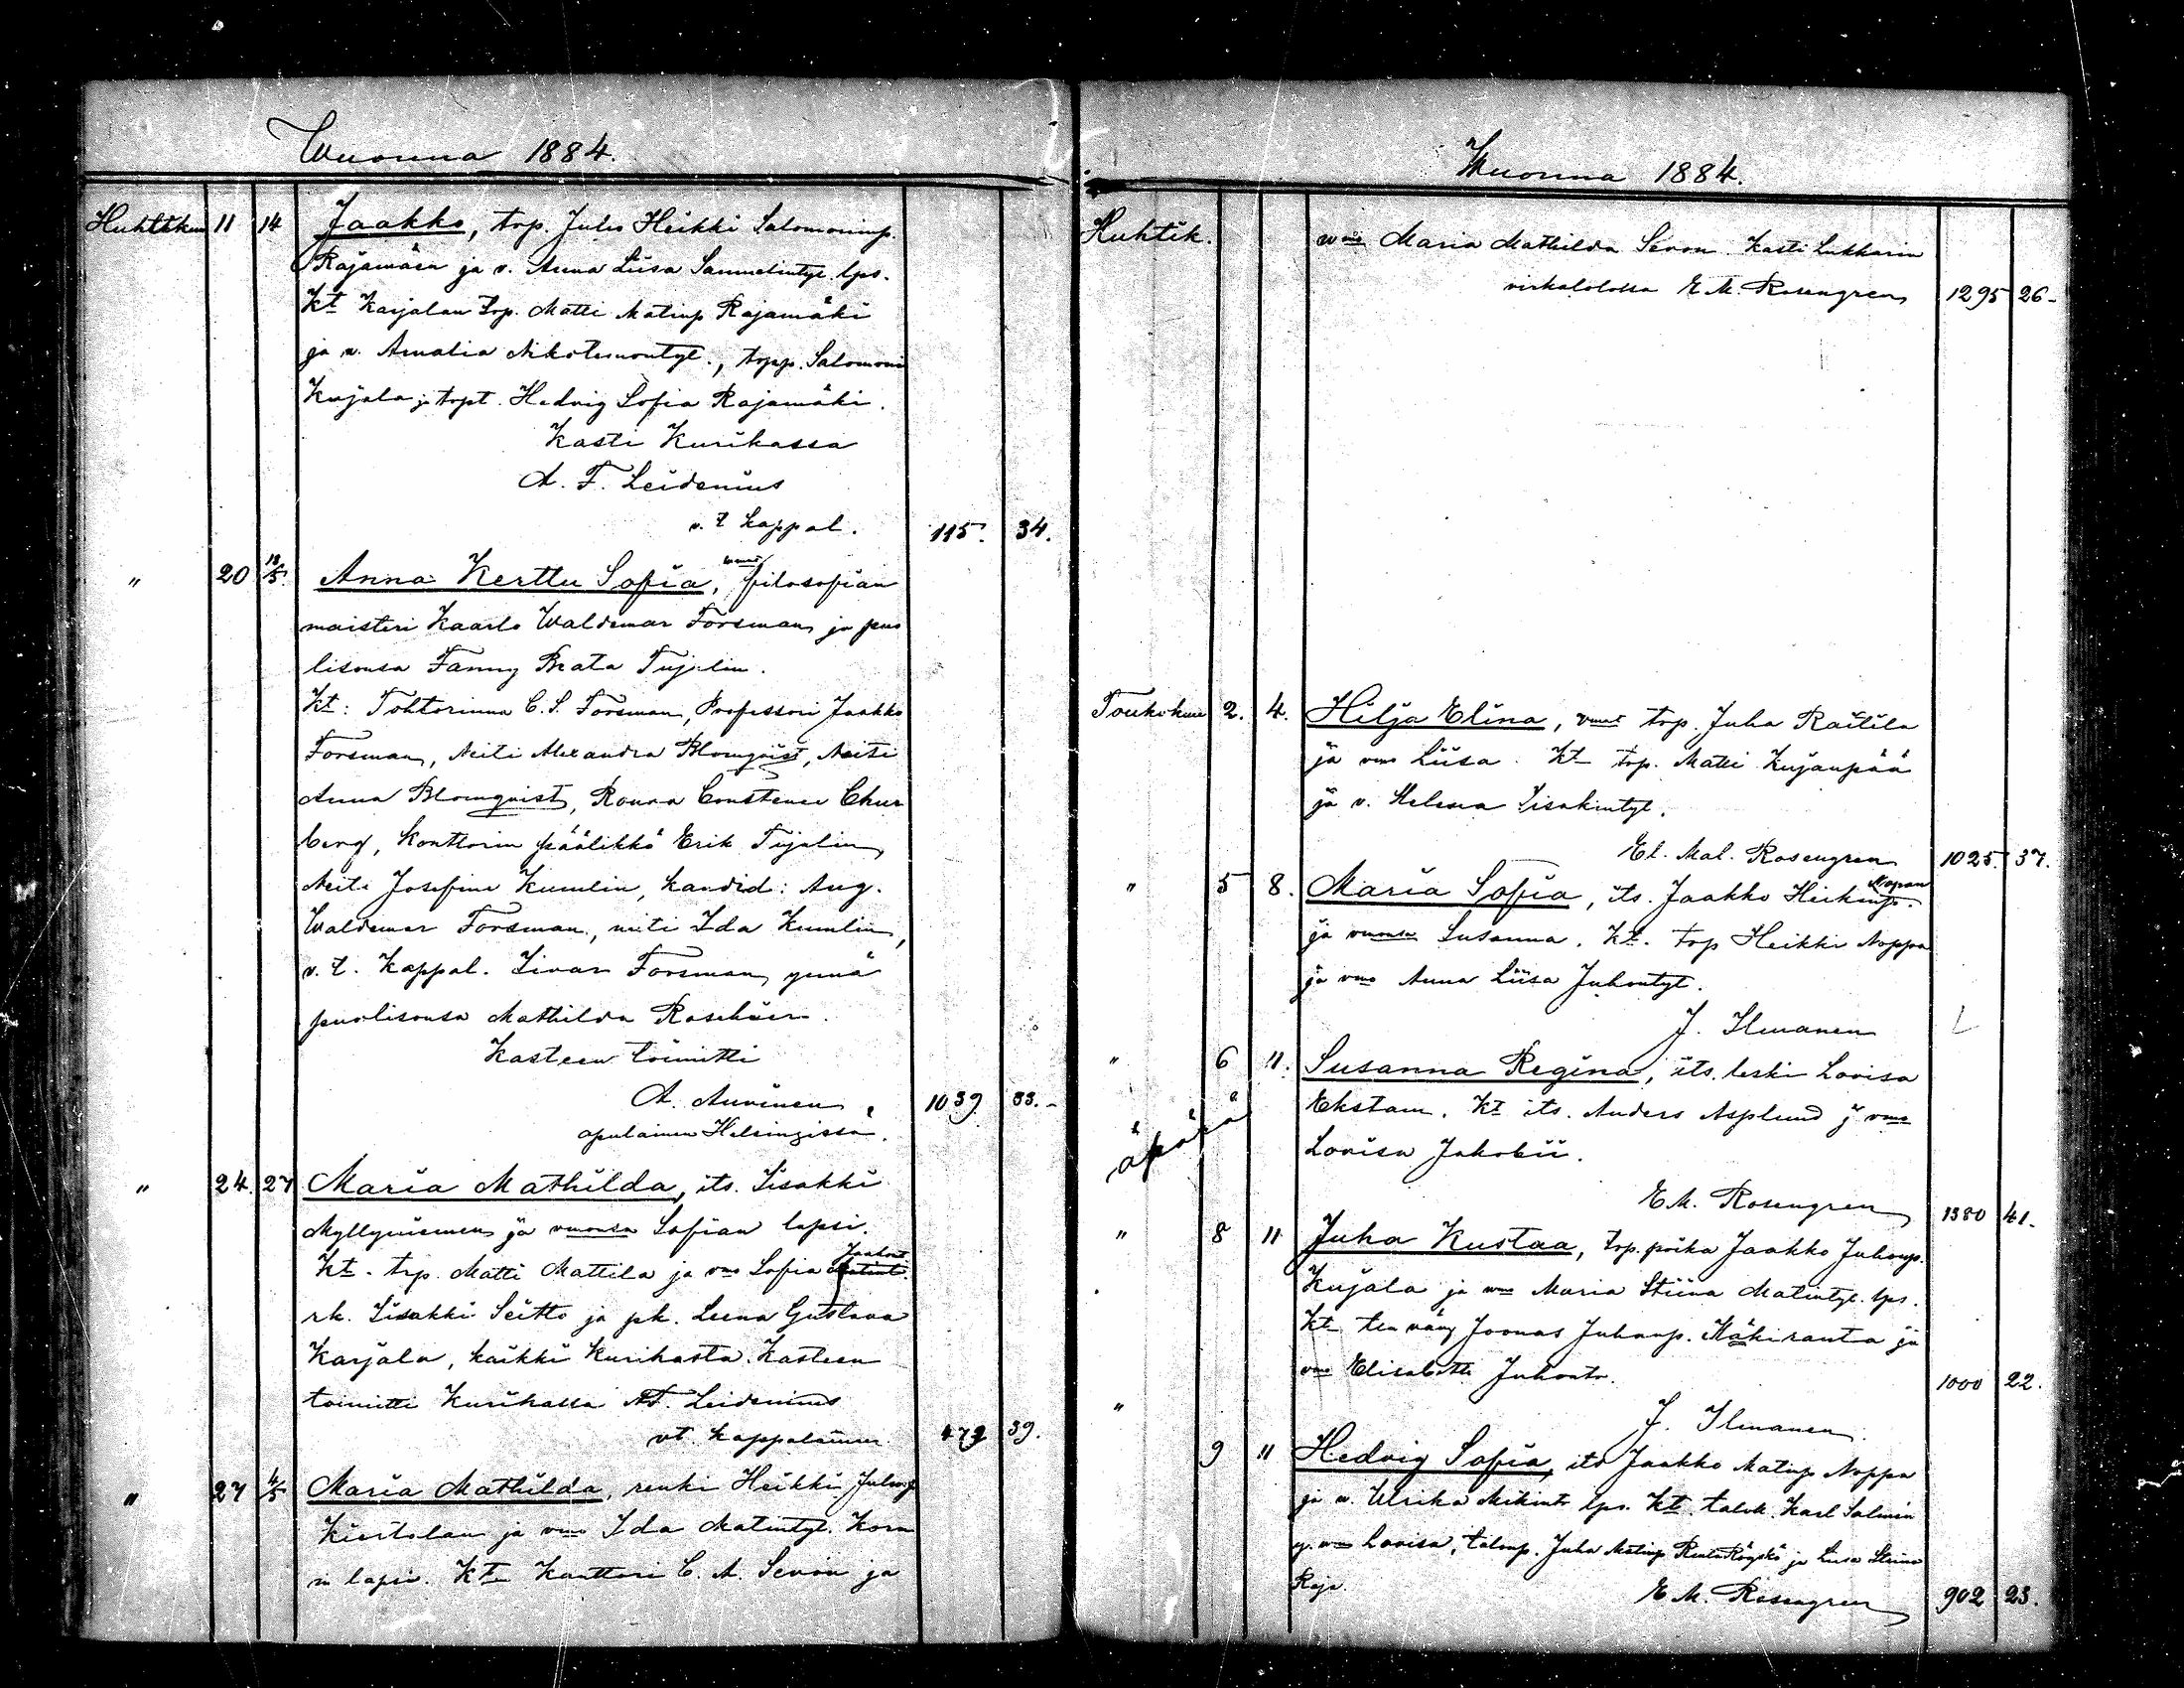 Wuonna 1884.
Huhtikuu 11 14 Jaakko, trp. Juho Heikki Salomoninp.
Rajamäen ja v. Anna Liisa Samelintyt. lps.
Kt Karjalan trp. Matti Matinp Rajamäki
ja v. Amalia, trpp. Salomoni
Kujala ja trpt. Hedvig Sofia Rajamäki.
Kasti Kurikassa
A. F. Leidenius
v. t kappal. 115. 34.
" 20 18/5 Anna Kerttu Sofia, filosofian
maisteri Kaarlo Waldemar Forsman ja puo
lisonsa Fanny Beata Tujulin.
Kt: Tohtorinna C. S. Forsman, Professori Jaakko
Forsman, Neiti Alexandra Blomqvist, Neiti
Anna Blomqvist, Rouva Constance Chur
berg, Konttorin päälikkö Erik Tujulin
Neiti Josefina Kumlin, kandid: Aug.
Waldemar Forsman, neiti Ida Kumlin,
v. t. Kappal. Iivar Forsman ynnä
puolisonsa Mathilda
Kasteen toimitti
A. Auvinen, 1039 33.-
apulainen Helsingissä.
" 24. 27 Maria Mathilda, its. Iisakki
Myllyniemen ja vmonsa Sofian lapsi.
Kt. trp. Matti Mattila ja vmo Sofia Jaakont.
rk. Iisakki Seitto ja pk. Leena Gustava
Karjala, kaikki Kurikasta. Kasteen
toimitti Kurikassa A.F. Leidenius
vt. kappalainen. 479 39.
" 27 4/5 Maria Mathilda, renki Heikki Juhonp
Kiertolan ja vmo Ida Matintyt. Kora
in lapsi. Kt Kanttori C. A. Sevón ja
Wuonna 1884.
Huhtik. vmo Maria Mathilda Sevon. Kasti Lukkarin
virkatalossa E. M. Rosengren 1295 26-
Toukokuu 2. 4. Hilja Elina, trp. Juha Raitila
ja vmo Liisa. Kt trp. Matti Kujanpää
ja v. Helena Iisakintyt.
El. Mal. Rosengren 1025. 37.
" 5 8. Maria Sofia, its. Jaakko Heikinp. Nopan
ja vmonsa Susanna. Kt. trp Heikki Noppa
ja vmo Anna Liisa Juhontyt.
J. Ilmanen
" 6 11. Susanna Regina, its. leski Lovisa
äpärä Ekstam. Kt its. Anders Asplund j vmo
Lovisa Jakobii.
E. M. Rosengren 1380 41.
" 8 11 Juha Kustaa, trp. poika Jaakko Juhonp.
Kujala ja vmo Maria Stiina Matintyt. lps.
Kt Joonas Juhonp. Mäkiranta ja
vmo Elisabetta Juhontr. 1000 22.
" J. Ilmanen.
9 11 Hedvig Sofia, its Jaakko Matinp Noppa
ja v. Ulrika Mikintr lps. Kt. talok. Karl Salmén
y. vmo Lovisa, talonp. Juha Matinp Röyskö ja Liisa Stiina
Raja. E. M. Rosengren 902 23.